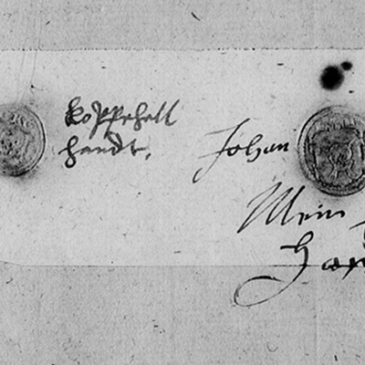 Koppehell
handt,
Johan
Mein
Han